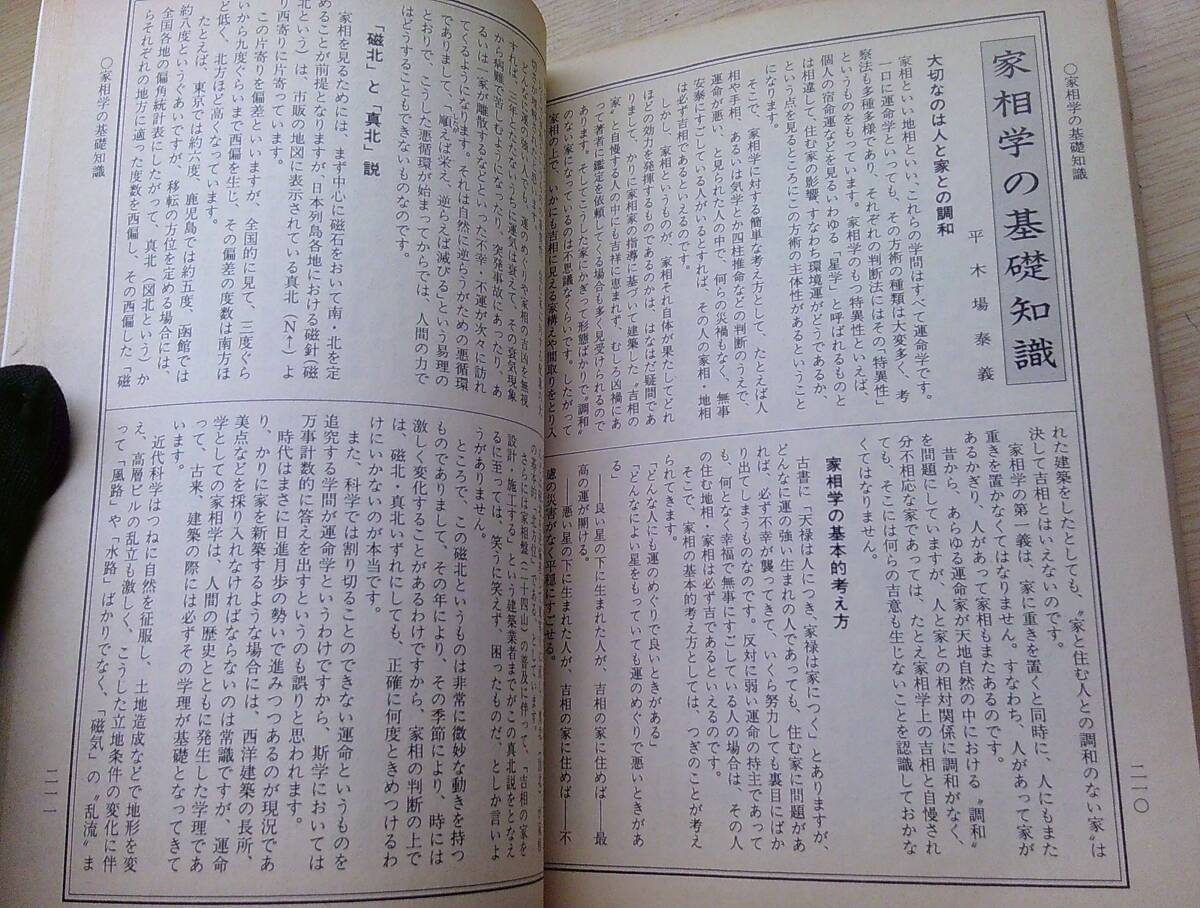 ○家相学の基礎知識
家相学の基礎知識
平木場泰義
大切なのは人と家との調和
家相といい地相といい、これらの学問はすべて運命学です。
一口に運命学といっても、その方術の種類は大変多く、考
察法も多種多様であり、それぞれの判断法にはその「特異性」
というものをもっています。家相学のもつ特異性といえば、
個人の宿命運などを見るいわゆる「星学」と呼ばれるものと
は相違して、住む家の影響、すなわち環境運がどうであるか、
という点を見るところにこの方術の主体性があるということ
になります。
そこで、家相学に対する簡単な考え方として、たとえば人
相や手相、あるいは気学とか四柱推命などの判断のうえで、
運命が悪い、と見られた人の中で、何らの災禍もなく、無事
安泰にすごしている人がいるとすれば、その人の家相・地相
は必ず吉相であるといえるのです。
しかし、家相というものが、家相それ自体が果たしてどれ
ほどの効力を発揮するものであるのかは、はなはだ疑問であ
りまして、かりに家相家の指導に基づいて建築した〝吉相の
家〟と自慢する人の中にも吉祥に恵まれず、むしろ凶禍にあ
って著者に鑑定を依頼してくる場合も多く見受けられるので
あります。そしてこうした家にかぎって形態ばかりで〝調和〟
のない家になっているのは不思議なくらいです。したがって
家相の上で、いかにも吉相に見える家構えや間取りをとり入
れた建築をしたとしても、〝家と住む人との調和のない家〟は
決して吉相とはいえないのです。
家相学の第一義は、家に重きを置くと同時に、人にもまた
重きを置かなくてはなりません。すなわち、人があって家が
あるかぎり、人があって家相もまたあるのです。
昔から、あらゆる運命家が天地自然の中における〝調和〟
を問題にしていますが、人と家との相対関係に調和がなく、
分不相応な家であっては、たとえ家相学上の吉相と自慢され
ても、そこには何らの吉意も生じないことを認識しておかな
くてはなりません。
家相学の基本的考え方
古書に「天禄は人につき、家禄は家につく」とありますが、
どんなに運の強い生まれの人であっても、住む家に問題があ
れば、必ず不幸が襲ってきて、いくら努力しても裏目にばか
り出てしまうものなのです。反対に弱い運命の持主であって
も、何となく幸福で無事にすごしている人の場合は、その人
の住む地相・家相は必ず吉であるといえるのです。
そこで、家相の基本的考え方としては、つぎのことが考え
られてきます。
「どんな人にも運のめぐりで良いときがある」
「どんなによい星をもっていても運のめぐりで悪いときがあ
る」
――良い星の下に生まれた人が、吉相の家に住めば――最
高の運が開ける。
――悪い星の下に生まれた人が、吉相の家に住めば――不
慮の災害がなく平穏にすごせる。
二一〇
○家相学の基礎知識
どんなに運の強い人でも、運のめぐりや家相の吉凶を無視
すれば、三年とたたないうちに運気は衰えて、その衰気現象
から病難で苦しむようになったり、突発事故にあったり、あ
るいは一家が離散するなどといった不幸・不運が次々に訪れ
てくるようになります。それは自然に逆らうがための悪循環
でありまして、「順えば栄え、逆らえば滅びる」という易理の
とおりで、こうした悪循環が始まってからでは、人間の力で
はどうすることもできないものなのです。
「磁北」と「真北」説
家相を見るためには、まず中心に磁石をおいて南・北を定
めることが前提となりますが、日本列島各地における磁針（磁
北という）は、市販の地図に表示されている真北（N↑）よ
り西寄りに片寄っています。
この片寄りを偏差といいますが、全国的に見て、三度ぐら
いから九度ぐらいまで西偏を生し、その偏差の度数は南方ほ
ど低く、北方ほど高くなっています。
たとえば、東京では約六度、鹿児島では約五度、函館では
約八度というぐあいですが、移転の方位を定める場合には、
全国各地の偏角統計表にしたがって、真北（図北という）か
らそれぞれの地方に適った度数を西偏し、その西偏した「磁
さらには家相盤（二十四山）の普及に伴って、「吉相の家を
設計・施工する」という建築業者までがこの真北説をとなえ
るに至っては、笑うに笑えず、困ったものだ、としか言いよ
うがありません。
ところで、この磁北というものは非常に微妙な動きを持つ
ものでありまして、その年により、その季節により、時には
激しく変化することがあるわけですから、家相の判断の上で
は、磁北・真北いずれにしても、正確に何度ときめつけるわ
けにいかないのが本当です。
また、科学では割り切ることのできない運命というものを
追究する学問が運命学というわけですから、斯学においては
万事計数的に答えを出すというのも誤りと思われます。
時代はまさに日進月歩の勢いで進みつつあるのが現況であ
り、かりに家を新築するような場合には、西洋建築の長所、
美点などを採り入れなければならないのは常識ですが、運命
学としての家相学は、人間の歴史とともに発生した学理であ
って、古来、建築の際には必ずその学理が基礎となってきて
います。
近代科学はつねに自然を征服し、土地造成などで地形を変
え、高層ビルの乱立も激しく、こうした立地条件の変化に伴
って「風路」や「水路」ばかりでなく、「磁気」の〝乱流〟ま
二一一